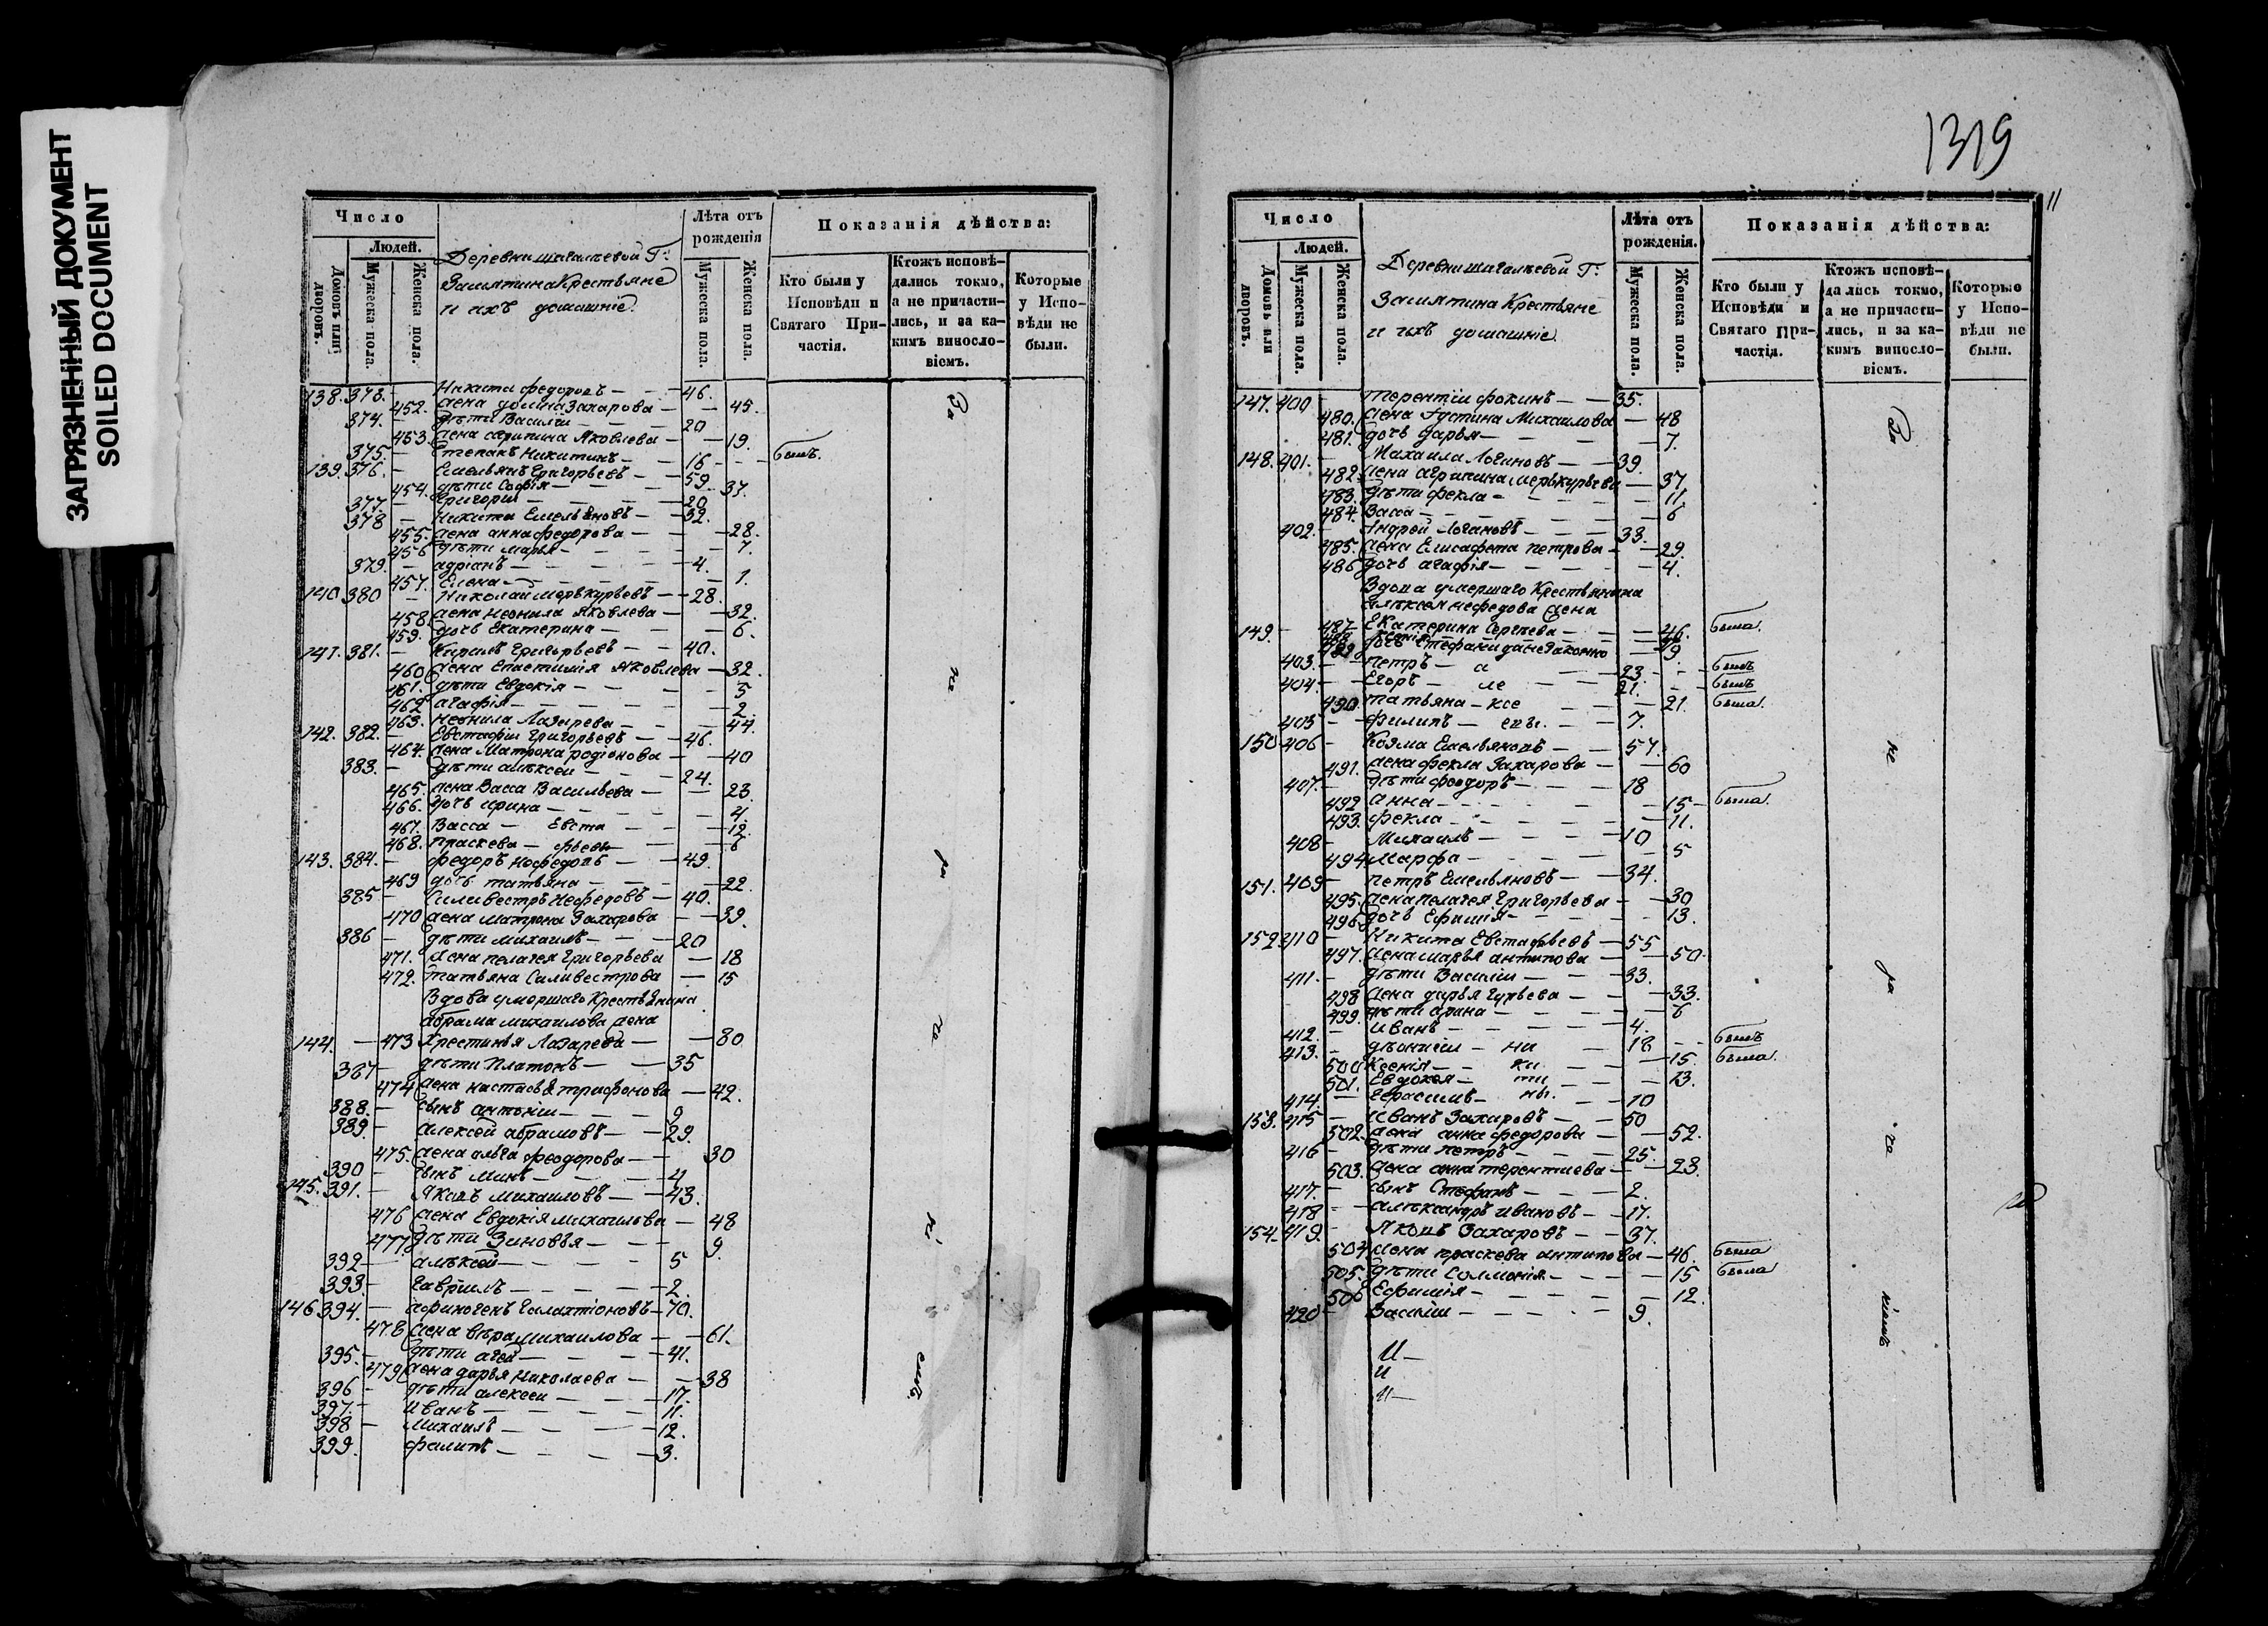 ЗАГРЯЗНЕННЫЙ ДОКУМЕНТ
SOILED DOCUMENT
Число
Людей.
Домовъ или дворовъ.
Мужеска пола.
Женска пола.
Деревни Г:
Замятина Крестьяне
и ихъ домашніе.
Лѣта отъ рожденія
Мужеска пола.
Женска пола.
Показанія дѣйства:
Кто были у Исповѣди и Святаго Причастія.
Ктожъ исповѣдались токмо, а не причастились, и за какимъ винословіемъ.
Которые у Исповѣди не были.
138. 373. — Никита Федоровъ — 46.
452. жена домна Захарова — 45.
374. — дѣти Василій — 20
453. жена Яковлева — 19.
375. — Степанъ Никитинъ — 16 — былъ.
139. 376. — Емельянъ Григорьевъ — 59
454. дѣти Софія — 37.
377. — Григорій — 20
378 — Никита Емельяновъ — 32.
455. жена анна федорова — 28.
456 дѣти марья — 7.
379. — адріанъ — 4.
457. Елена — 1.
140 380 — Николай Меркурьевъ — 28.
458. жена Неонила Яковлева — 32.
459. дочь Екатерина — 6.
141. 381. — Кирилъ Григорьевъ — 40.
460 жена Яковлева — 32.
461. дѣти Евдокія — 5
462 агафія — 2.
463. Неонила Лазарева — 44.
142. 382. — Евстафій Григорьевъ — 46.
464. жена Матрона родіонова — 40
383. — дѣти алѣксей — 24.
465. жена Васса Васильева — 23.
466. дочь ирина — 4.
467. Васса — Евста — 12.
468. Праскева — фьевы — 6
143. 384. — федоръ Нефедовъ — 49.
469 дочь татьяна — 22.
385 — Силивестръ Нефедовъ — 40.
470 жена матрона Захарова — 39.
386 — дѣти михаилъ — 20
471. жена пелагея Григорьева — 18
472. татьяна Силивестрова — 15
Вдова умершаго Крестьянина
абрама михаилова жена
144. — 473 Хрестинья Лазарева — 80
387 — дѣти Платонъ — 35
474 жена настасья трифонова — 42.
388. — сынъ антоній — 9
389. — алексей абрамовъ — 29.
475. жена ольга феодорова — 30
390 — сынъ — 4
145. 391. — Яковъ михаиловъ — 43.
476 жена Евдокія михаилова — 48
477 дѣти Зиновья — 9.
392 — алѣксей — 5
393 — Гаврилъ — 2.
146 394. — афиногенъ Галахтіоновъ — 70.
478 жена вѣра михаилова — 61.
395. — дѣти агей — 41.
479 жена дарья Николаева — 38
396 — дѣти алексей — 17.
397. — иванъ — 11.
398 — михаилъ — 12.
399. филипъ — 3.
За
не
ра
че
ні
емъ.
1319
11
Число
Людей.
Домовъ или дворовъ.
Мужеска пола.
Женска пола.
Деревни Г:
Замятина Крестьяне
и ихъ домашніе.
Лѣта отъ рожденія.
Мужеска пола.
Женска пола.
Показанія дѣйства:
Кто были у Исповѣди и Святаго Причастія.
Ктожъ исповѣдались токмо, а не причастились, и за какимъ винословіемъ.
Которые у Исповѣди не были.
147. 400 — терентій фокинъ — 35.
480. жена Устина Михаилова — 48
481. дочь дарья — 7.
148. 401. — Михаила Логиновъ — 39.
482. жена агрипина меркурьева — 37.
483. дѣти фекла — 11.
484. Васса — 6
402. — Андрей Логиновъ — 33.
485. жена Елисафета петрова — 29.
486 дочь агафія — 4.
Вдова умершаго Крестьянина
алѣксея нефедова жена
149. — 487. Екатерина Сергѣева — 46. была.
403. — петръ — а — 23. — былъ
404. — Егоръ — ле — 21. — былъ
490. татьяна — ксе — 21. была.
405 — филипъ — евы. — 7.
150 406 — Козма Емельяновъ — 57.
491. жена фекла Захарова — 60
407. — дѣти феодоръ — 18
492 анна — 15 — была.
493. фекла — 11.
408 — Михаилъ — 10
494 марфа — 5
151. 409 — петръ Емельяновъ — 34.
495. жена пелагея Григорьева — 30
496 дочь Ефимія — 13.
152 410 — Никита Евстафьевъ — 55
497. жена марья антипова — 50.
411. — дѣти Василій — 33.
498 жена дарья Гурьева — 33.
499. дѣти арина — 6
412. — иванъ — 4.
413. — діонисій — ни — 18 — былъ
500 Ксенія — ки — 15. была.
501. Евдокея — ти — 13.
414 — Герасимъ — ны. — 10
153. 415 — Иванъ Захаровъ — 50
502. жена анна федорова — 52.
416 — дѣти петръ — 25.
503. жена анна терентиева — 23.
417. — сынъ Стефанъ — 2.
418 — алѣксандръ ивановъ — 17.
154. 419. — Яковъ Захаровъ — 37.
504 жена праскева антипова — 46. была
505. дѣти Соломонія — 15 была
506 Ефимія — 12.
420 — Василій — 9.
И —
И
И —
За
не
ра
че
ніемъ